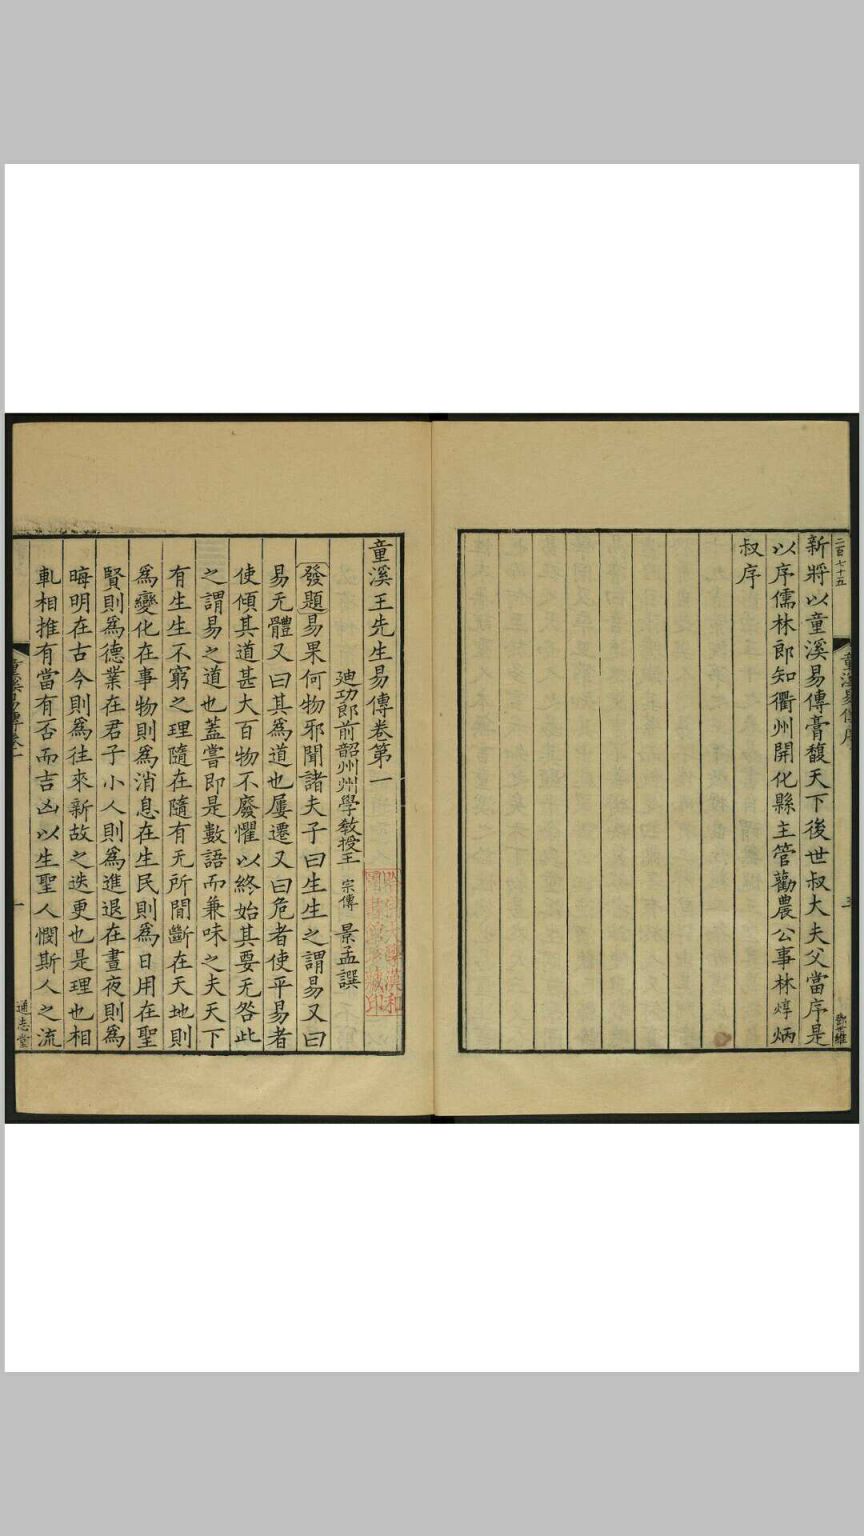 二百七十五
新將以童溪易傳膏馥天下後世叔大夫父當序是
以序儒林郎知衢州開化縣主管勸農公事林焞炳
叔序
童溪王先生易傳卷第一
迪功郎前韶州州學教授王 宗傳 景孟 譔
發題易果何物邪聞諸夫子曰生生之謂易又曰
易无體又曰其為道也屢遷又曰危者使平易者
使傾其道甚大百物不廢懼以終始其要无咎此
之謂易之道也蓋嘗即是數語而兼味之夫天下
有生生不窮之理隨在隨有无所間斷在天地則
為變化在事物則為消息在生民則為日用在聖
賢則為德業在君子小人則為進退在晝夜則為
晦明在古今則為往來新故之迭更也是理也相
軋相推有當有否而吉凶以生聖人憫斯人之流
通志堂